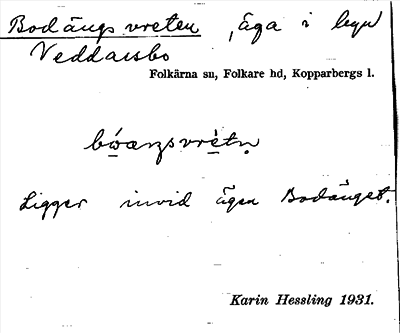 Bodängsvreten, äga i byn
Veddarsbo
Folkärna sn, Folkare hd, Kopparbergs l.
Ligger invid ägan Bodänget.
Karin Hessling 1931.